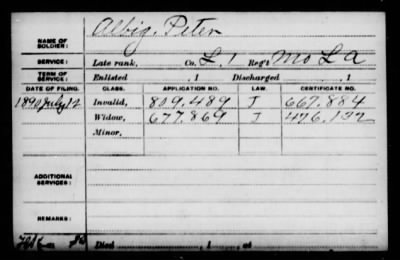 NAME OF SOLDIER: Albig, Peter
SERVICE: Late rank, Co. L, 1 Reg't Mo L A
TERM OF SERVICE: Enlisted , 1 Discharged , 1
DATE OF FILING. CLASS. APPLICATION NO. LAW. CERTIFICATE NO.
1890 July 12 Invalid, 809.489 J 667.884
Widow, 677.869 J 476.132
Minor,
ADDITIONAL SERVICES:
REMARKS:
Died , 1 , at